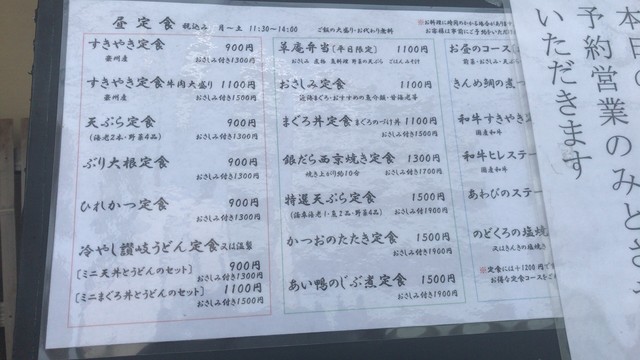 昼定食 税込み 月～土 11:30～14:00 ご飯の大盛り・お代わり無料
すきやき定食 900円
豪州産 おさしみ付き1300円
すきやき定食 牛肉大盛り 1100円
豪州産 おさしみ付き1500円
天ぷら定食 900円
(海老2本・野菜4品) おさしみ付き1300円
ぶり大根定食 900円
おさしみ付き1300円
ひれかつ定食 900円
おさしみ付き1300円
冷やし讃岐うどん定食 又は温製
[ミニ天丼とうどんのセット] 900円
おさしみ付き1300円
[ミニまぐろ丼とうどんのセット] 1100円
おさしみ付き1500円
草庵弁当(平日限定) 1100円
おさしみ 煮物 魚料理 野菜の天ぷら ごはん みそ汁
おさしみ定食 1100円
近海まぐろ・おすすめの魚介類・甘海老等
まぐろ丼定食 まぐろのづけ丼 1100円
おさしみ付き1500円
銀だら西京焼き定食 1300円
焼き上がり約10分 おさしみ付き1700円
特選天ぷら定食 1500円
(活車海老1・魚2品・野菜4品) おさしみ付き1900円
かつおのたたき定食 1500円
おさしみ付き1900円
あい鴨のじぶ煮定食 1500円
おさしみ付き1900円
※お料理に時間のかかる場合が
お客様は事前に
お昼のコース
前菜・おさしみ
きんめ鯛の煮
和牛すきやき
国産和牛
和牛ヒレステー
国産和牛
あわびのステー
のどくろの塩焼
又はきんきの塩焼き
※定食には+1200円で
お得な定食コースを
本日の
予約営業のみとさ
いただきます